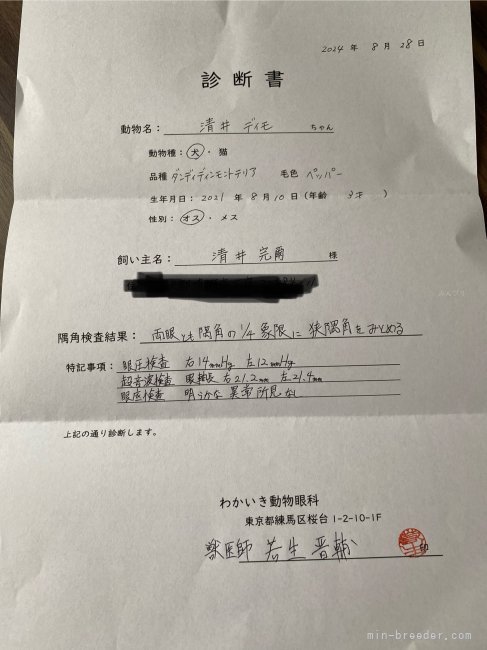 2024 年 8 月 28 日
診断書
動物名： 清井 ディモ ちゃん
動物種：犬・猫
品種 ダンディディンモントテリア 毛色 ペッパー
生年月日：2021 年 8 月 10 日（年齢 3才 ）
性別：オス・メス
飼い主名： 清井 完爾 様
隅角検査結果： 両眼とも隅角の1/4象限に狭隅角をみとめる
特記事項： 眼圧検査 右14mmHg 左12mmHg
超音波検査 眼軸長 右21.2mm 左21.4mm
眼底検査 明らかな異常所見なし
上記の通り診断します。
わかいき動物眼科
東京都練馬区桜台 1-2-10-1F
獣医師 若生 晋輔 印
min-breeder.com